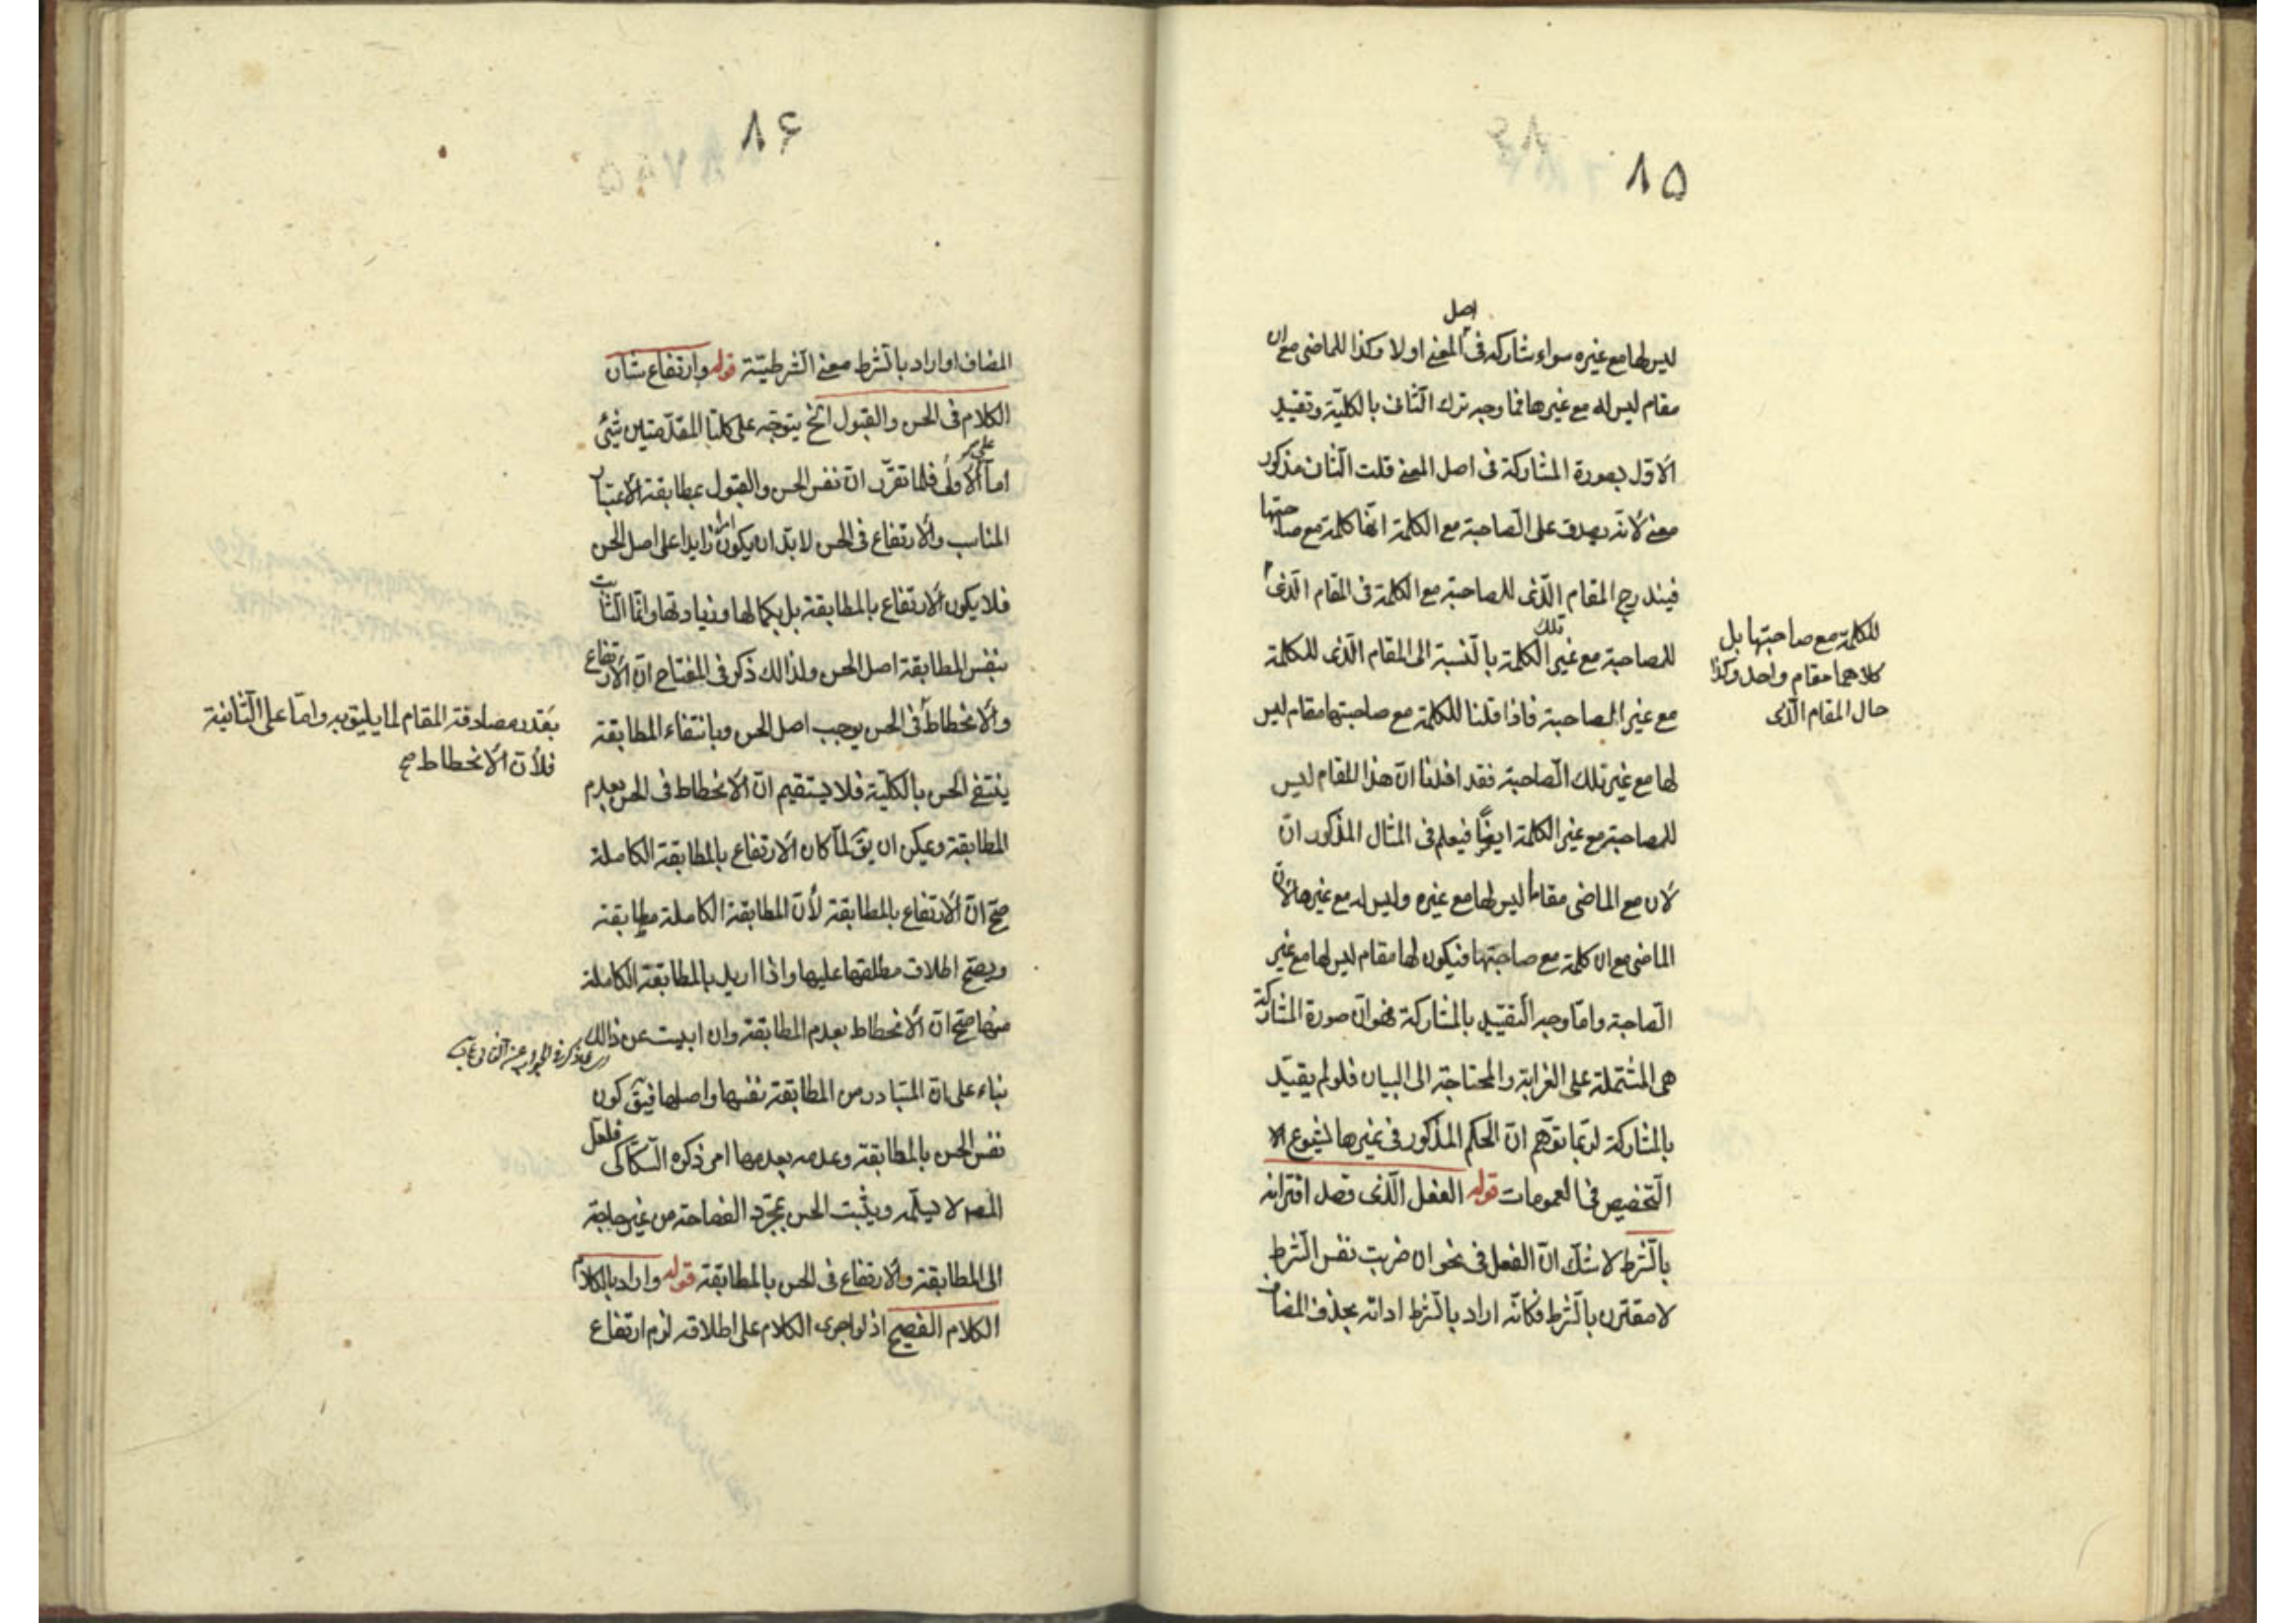 ٨٥
اصل
ليس لها مع غيره سواء شاركه فى المعنى اولا وكذا للماضى مع ان
مقام ليس له مع غيرها فما وجه ترك الثانى بالكلية وتقييد
الاول بصورة المشاركة فى اصل المعنى قلت الثانى مذكور
معنى لانه يصدق على الصاحبة مع الكلمة انها كلمة مع صاحبتها
فيندرج المقام الذى للصاحبة مع الكلمة فى المقام الذى
للصاحبة مع غير تلك الكلمة بالنسبة الى المقام الذى للكلمة
مع غير الصاحبة فاذا قلنا للكلمة مع صاحبتها مقام ليس
لها مع غير تلك الصاحبة فقد افدنا ان هذا المقام ليس
للصاحبة مع غير الكلمة ايضًا فيعلم فى المثال المذكور انّ
لان مع الماضى مقاما ليس لها مع غيره وليس له مع غيرها لانّ
الماضى مع ان كلمة مع صاحبتها فيكون لها مقام ليس لها مع غير
الصاحبة وامّا وجه التقييد بالمشاركة فهو انّ صورة المشاركة
هى المشتملة على الغرابة والمحتاجة الى البيان فلو لم يقيّد
بالمشاركة لربّما توهّم انّ الحكم المذكور فى غيرها لشيوع
التخصيص فى العمومات قوله الفعل الّذى قصد اقترانه
بالشّرط لا شكّ انّ الفعل فى نحو ان ضربت نفس الشّرط
لا مقترن بالشّرط فكانّه اراد بالشّرط اداته بحذف المضاف
للكلمة مع صاحبتها بل
كلاهما مقام واحد وكذا
حال المقام الّذى
٨۶
المضاف او اراد بالشّرط معنى الشّرطيّة قوله وارتفاع شان
الكلام فى الحسن والقبول الخ يتوجّه على كلتا المقدّمتين شئ
امّا على الاولى فلما تقرّر انّ نفس الحسن والقبول بمطابقة الاعتبار
المناسب والارتفاع فى الحسن لا بدّ ان يكون امرا زايدا على اصل الحسن
فلا يكون الارتفاع بالمطابقة بل بكمالها وزيادتها وانّما الثّابت
بنفس المطابقة اصل الحسن ولذالك ذكر فى المفتاح انّ الارتفاع
والانحطاط فى الحسن يوجب اصل الحسن وبانتفاء المطابقة
ينتفى الحسن بالكلّية فلا يستقيم انّ الانحطاط فى الحسن بعدم
المطابقة ويمكن ان يقَ لمّا كان الارتفاع بالمطابقة الكاملة
صحّ انّ الارتفاع بالمطابقة لأنّ المطابقة الكاملة مطابقة
ويصحّ اطلاق مطلقها عليها واذا اريد بالمطابقة الكاملة
منها صحّ انّ الانحطاط بعدم المطابقة وان ابيت عن ذالك
بناء على انّ المتبادر من المطابقة نفسها واصلها فيقَ كون
نفس الحسن بالمطابقة وعدمه بعدمها امر ذكره السّكّاكى فلعل
المص لا يسلّمه ويثبت الحسن بمجرّد الفصاحة من غير حاجة
الى المطابقة والارتفاع فى الحسن بالمطابقة قوله واراد بالكلام
الكلام الفصيح اذ لو اجرى الكلام على اطلاقه لزم ارتفاع
بقدر مصادفة المقام لما يليق به وامّا على الثّانية
فلأنّ الانحطاط صح